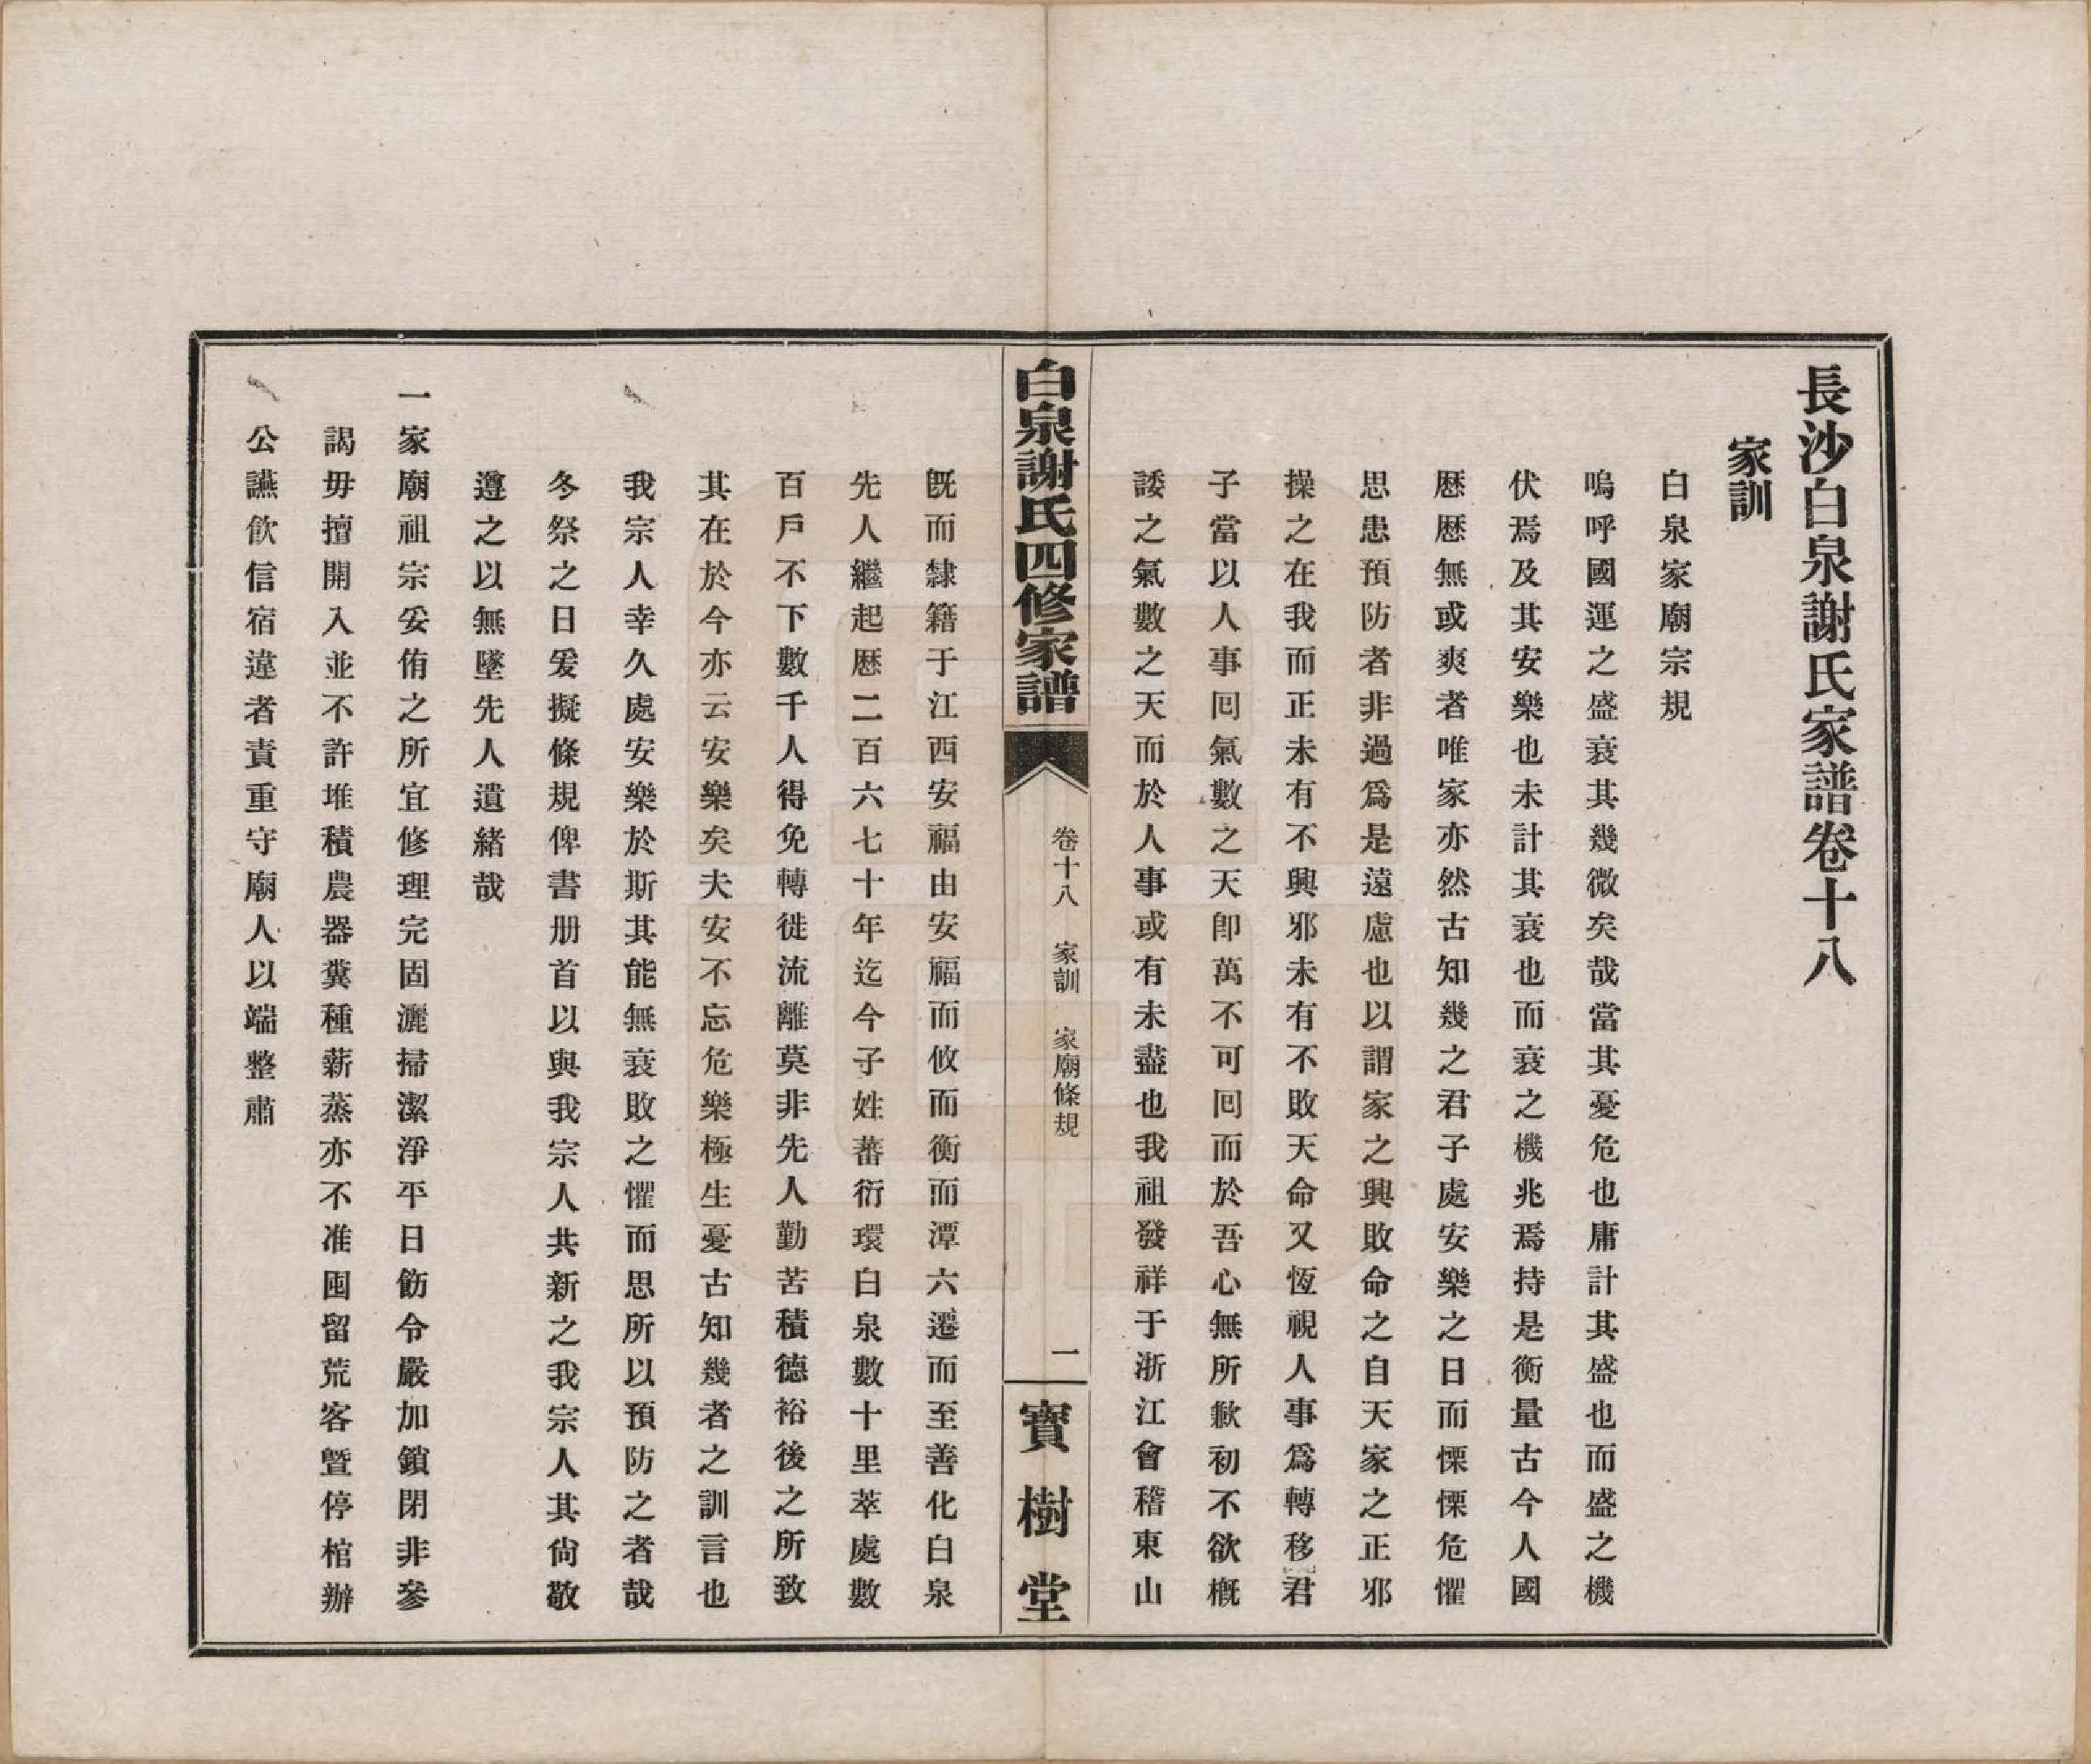 長沙白泉謝氏家譜卷十八
家訓
白泉家廟宗規
嗚呼國運之盛衰其幾微矣哉當其憂危也庸計其盛也而盛之機
伏焉及其安樂也未計其衰也而衰之機兆焉持是衡量古今人國
歷歷無或爽者唯家亦然古知幾之君子處安樂之日而慄慄危懼
思患預防者非過爲是遠慮也以謂家之興敗命之自天家之正邪
操之在我而正未有不興邪未有不敗天命又恆視人事爲轉移君
子當以人事囘氣數之天卽萬不可囘而於吾心無所歉初不欲槪
諉之氣數之天而於人事或有未盡也我祖發祥于浙江會稽東山
白泉謝氏四修家譜
卷十八 家訓 家廟條規
一
寶樹堂
旣而隸籍于江西安福由安福而攸而衡而潭六遷而至善化白泉
先人繼起歷二百六七十年迄今子姓蕃衍環白泉數十里萃處數
百戶不下數千人得免轉徙流離莫非先人勤苦積德裕後之所致
其在於今亦云安樂矣夫安不忘危樂極生憂古知幾者之訓言也
我宗人幸久處安樂於斯其能無衰敗之懼而思所以預防之者哉
冬祭之日爰擬條規俾書册首以與我宗人共新之我宗人其尙敬
遵之以無墜先人遺緒哉
一家廟祖宗妥侑之所宜修理完固灑掃潔淨平日飭令嚴加鎖閉非參
謁毋擅開入並不許堆積農器糞種薪蒸亦不准囤留荒客暨停棺辦
公讌飮信宿違者責重守廟人以端整肅